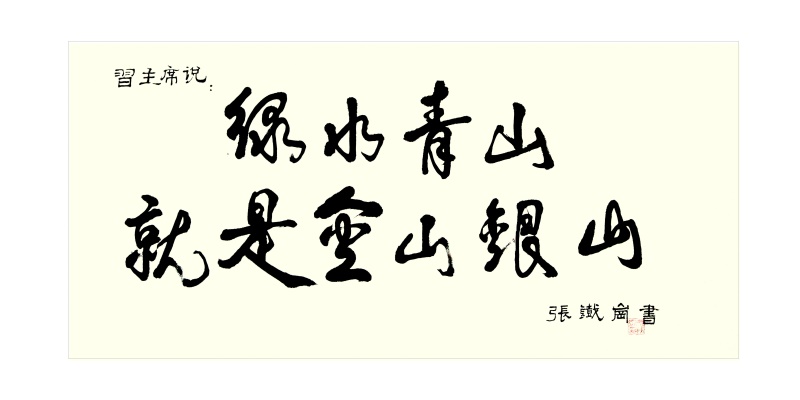 習主席说:
绿水青山
就是金山銀山
張鐵崗書